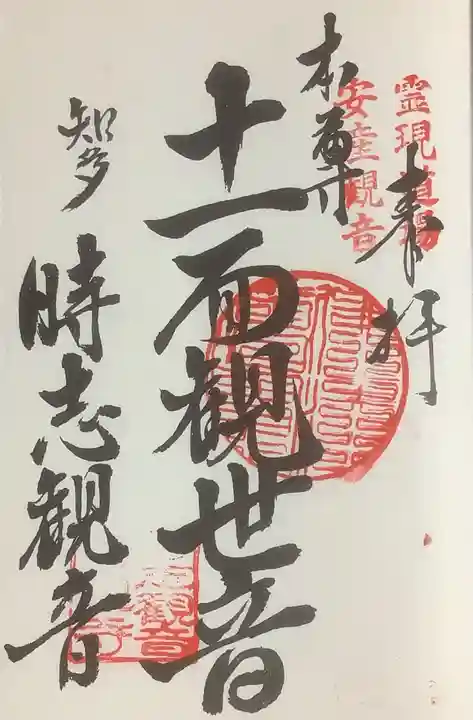 霊現道場
安産観音
奉拝
本尊
十一面観世音
智多
時志観音